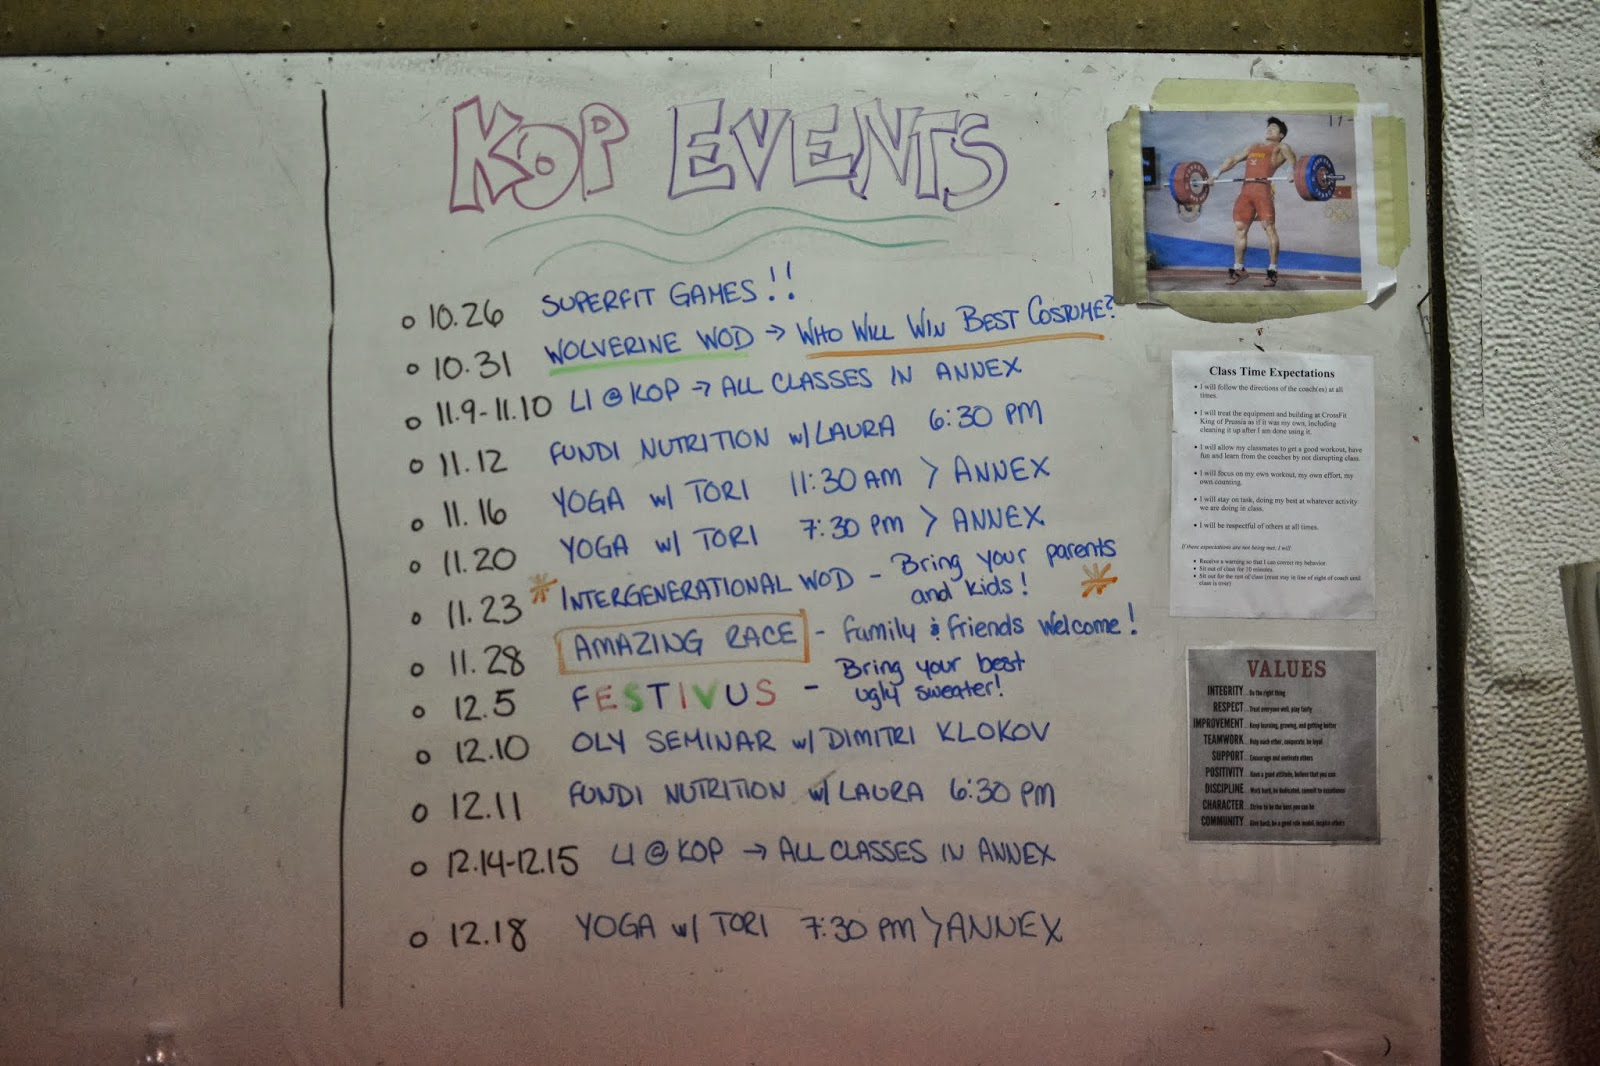 KOP EVENTS
o 10.26 SUPERFIT GAMES!!
o 10.31 WOLVERINE WOD → WHO WILL WIN BEST COSTUME?
o 11.9-11.10 L1 @ KOP → ALL CLASSES IN ANNEX
o 11.12 FUNDI NUTRITION w/ LAURA 6:30 PM
o 11.16 YOGA w/ TORI 11:30 AM > ANNEX
o 11.20 YOGA w/ TORI 7:30 PM > ANNEX
o 11.23 * INTERGENERATIONAL WOD - Bring your parents
and kids! *
o 11.28 AMAZING RACE - Family & Friends Welcome!
o 12.5 FESTIVUS - Bring your best
ugly sweater!
o 12.10 OLY SEMINAR w/ DIMITRI KLOKOV
o 12.11 FUNDI NUTRITION w/ LAURA 6:30 PM
o 12.14-12.15 L1 @ KOP → ALL CLASSES IN ANNEX
o 12.18 YOGA w/ TORI 7:30 PM > ANNEX
11-
Class Time Expectations
• I will follow the directions of the coach(es) at all
times.
• I will treat the equipment and building at CrossFit
King of Prussia as if it was my own, including
cleaning it up after I am done using it.
• I will allow my classmates to get a good workout, have
fun and learn from the coaches by not disrupting class.
• I will focus on my own workout, my own effort, my
own counting.
• I will stay on task, doing my best at whatever activity
we are doing in class.
• I will be respectful of others at all times.
If these expectations are not being met, I will:
• Receive a warning so that I can correct my behavior.
• Sit out of class for 10 minutes.
• Sit out for the rest of class (must stay in line of sight of coach until
class is over)
VALUES
INTEGRITY... Do the right thing
RESPECT... Treat everyone well, play fairly
IMPROVEMENT... Keep learning, growing, and getting better
TEAMWORK... Help each other, cooperate, be loyal
SUPPORT... Encourage and motivate others
POSITIVITY... Have a good attitude, believe that you can
DISCIPLINE... Work hard, be dedicated, commit to excellence
CHARACTER... Strive to be the best you can be
COMMUNITY... Give back, be a good role model, inspire others